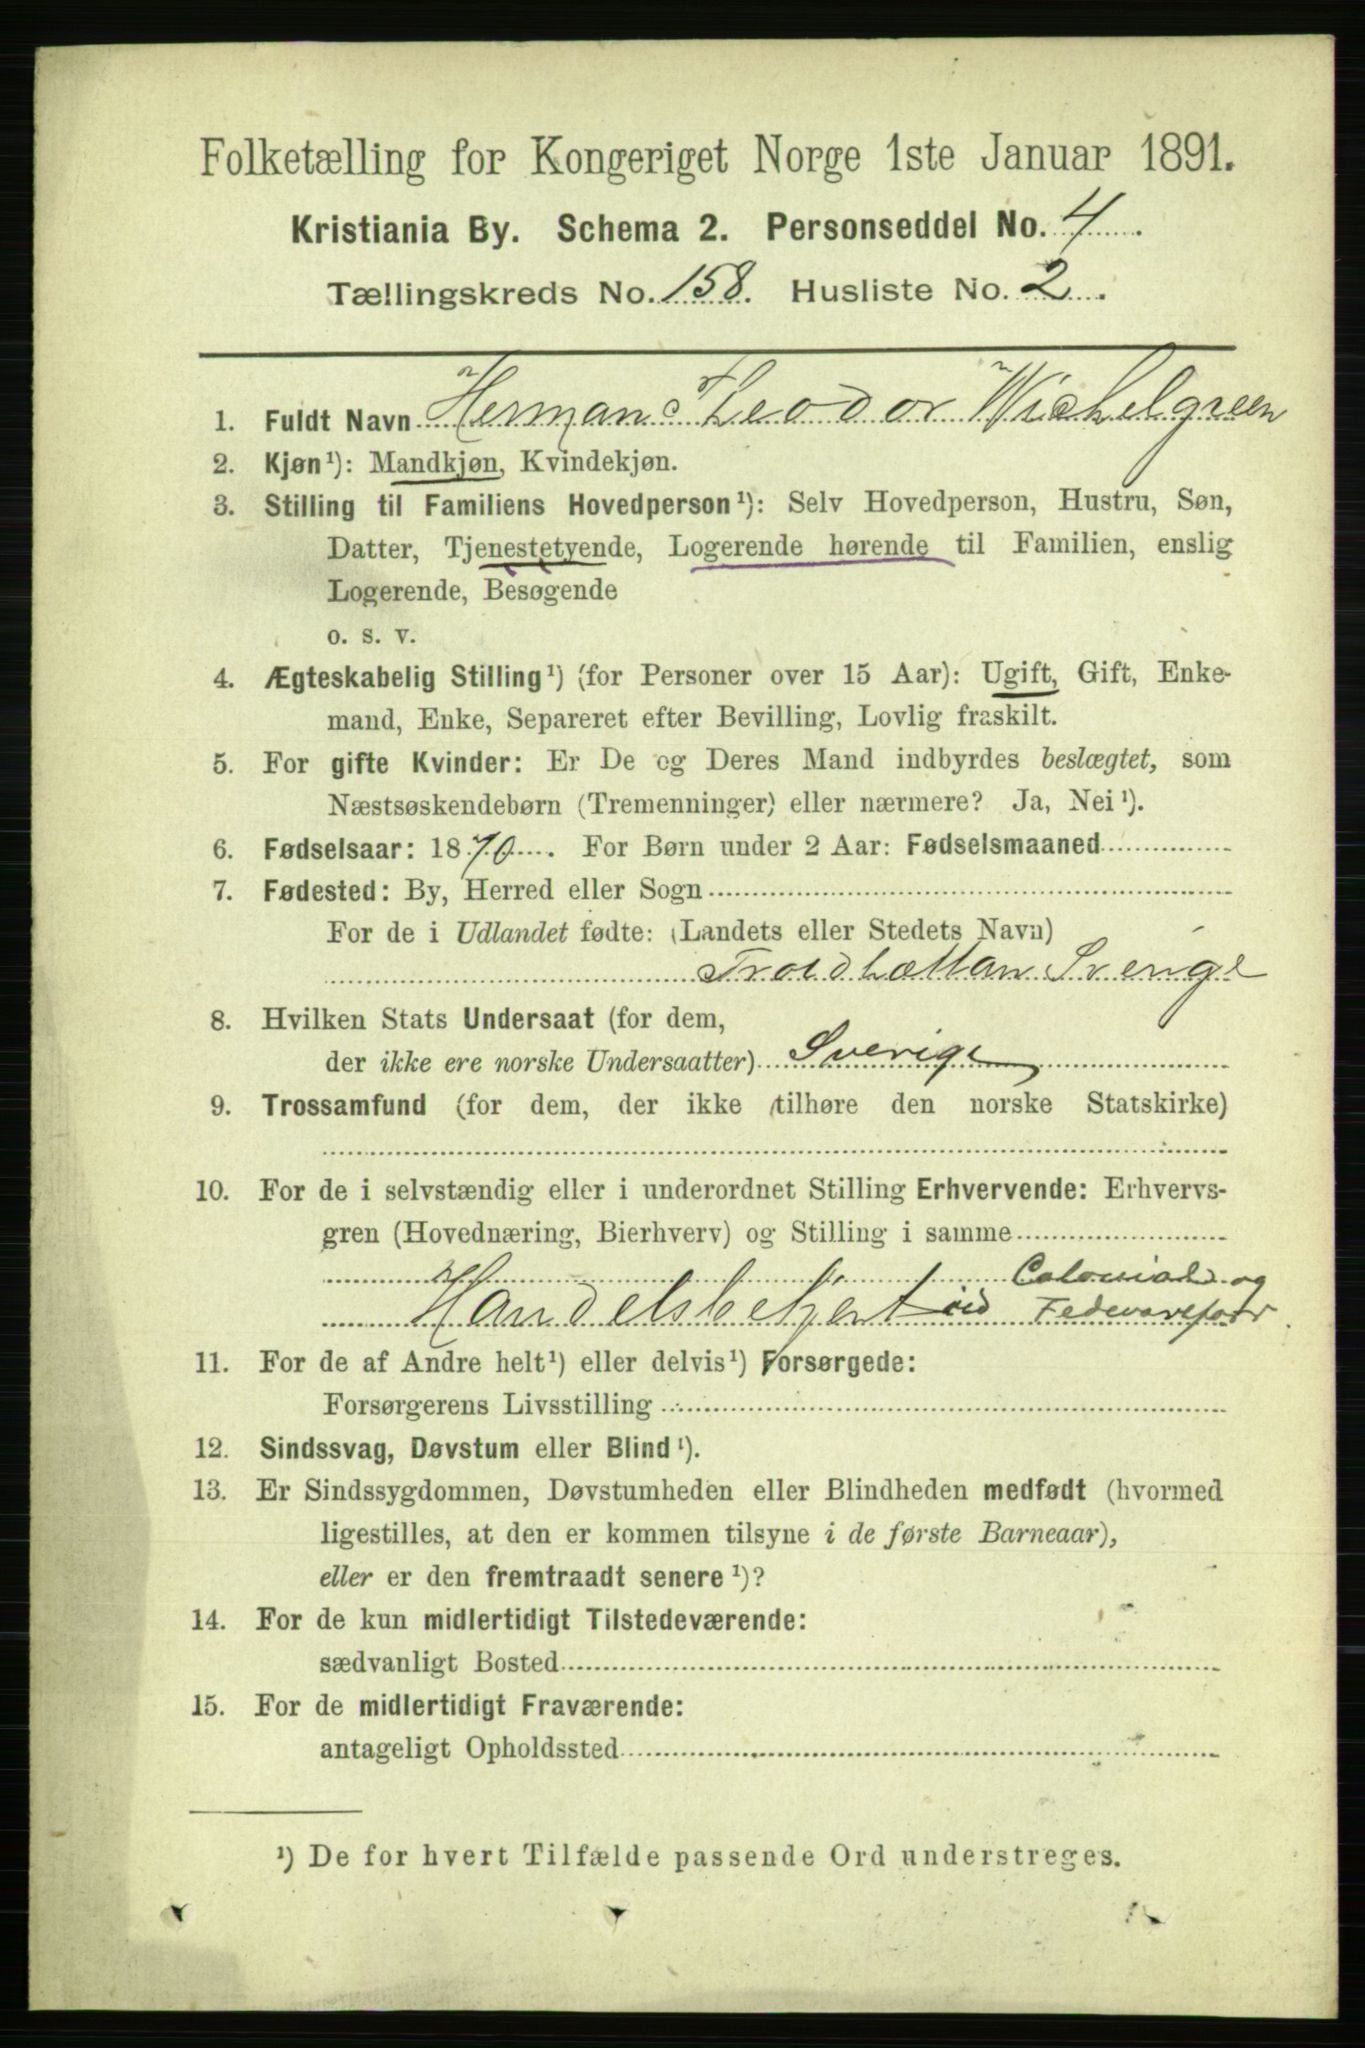 Folketælling for Kongeriget Norge 1ste Januar 1891.
Kristiania By. Schema 2. Personseddel No. 4.
Tællingskreds No. 158. Husliste No. 2.
1. Fuldt Navn Herman Theodor Wichelgreen
2. Kjøn¹): Mandkjøn, Kvindekjøn.
3. Stilling til Familiens Hovedperson¹): Selv Hovedperson, Hustru, Søn,
Datter, Tjenestetyende, Logerende hørende til Familien, enslig
Logerende, Besøgende
o. s. v.
4. Ægteskabelig Stilling¹) (for Personer over 15 Aar): Ugift, Gift, Enke-
mand, Enke, Separeret efter Bevilling, Lovlig fraskilt.
5. For gifte Kvinder: Er De og Deres Mand indbyrdes beslægtet, som
Næstsøskendebørn (Tremenninger) eller nærmere? Ja, Nei¹).
6. Fødselsaar: 1870. For Børn under 2 Aar: Fødselsmaaned
7. Fødested: By, Herred eller Sogn
For de i Udlandet fødte: (Landets eller Stedets Navn)
Troldhættan Sverige
8. Hvilken Stats Undersaat (for dem,
der ikke ere norske Undersaatter) Sverige
9. Trossamfund (for dem, der ikke tilhøre den norske Statskirke)
10. For de i selvstændig eller i underordnet Stilling Erhvervende: Erhvervs-
gren (Hovednæring, Bierhverv) og Stilling i samme
Colonial og
Handelsbetjent Fedevareforr.
11. For de af Andre helt¹) eller delvis¹) Forsørgede:
Forsørgerens Livsstilling
12. Sindssvag, Døvstum eller Blind¹).
13. Er Sindssygdommen, Døvstumheden eller Blindheden medfødt (hvormed
ligestilles, at den er kommen tilsyne i de første Barneaar),
eller er den fremtraadt senere¹)?
14. For de kun midlertidigt Tilstedeværende:
sædvanligt Bosted
15. For de midlertidigt Fraværende:
antageligt Opholdssted
¹) De for hvert Tilfælde passende Ord understreges.